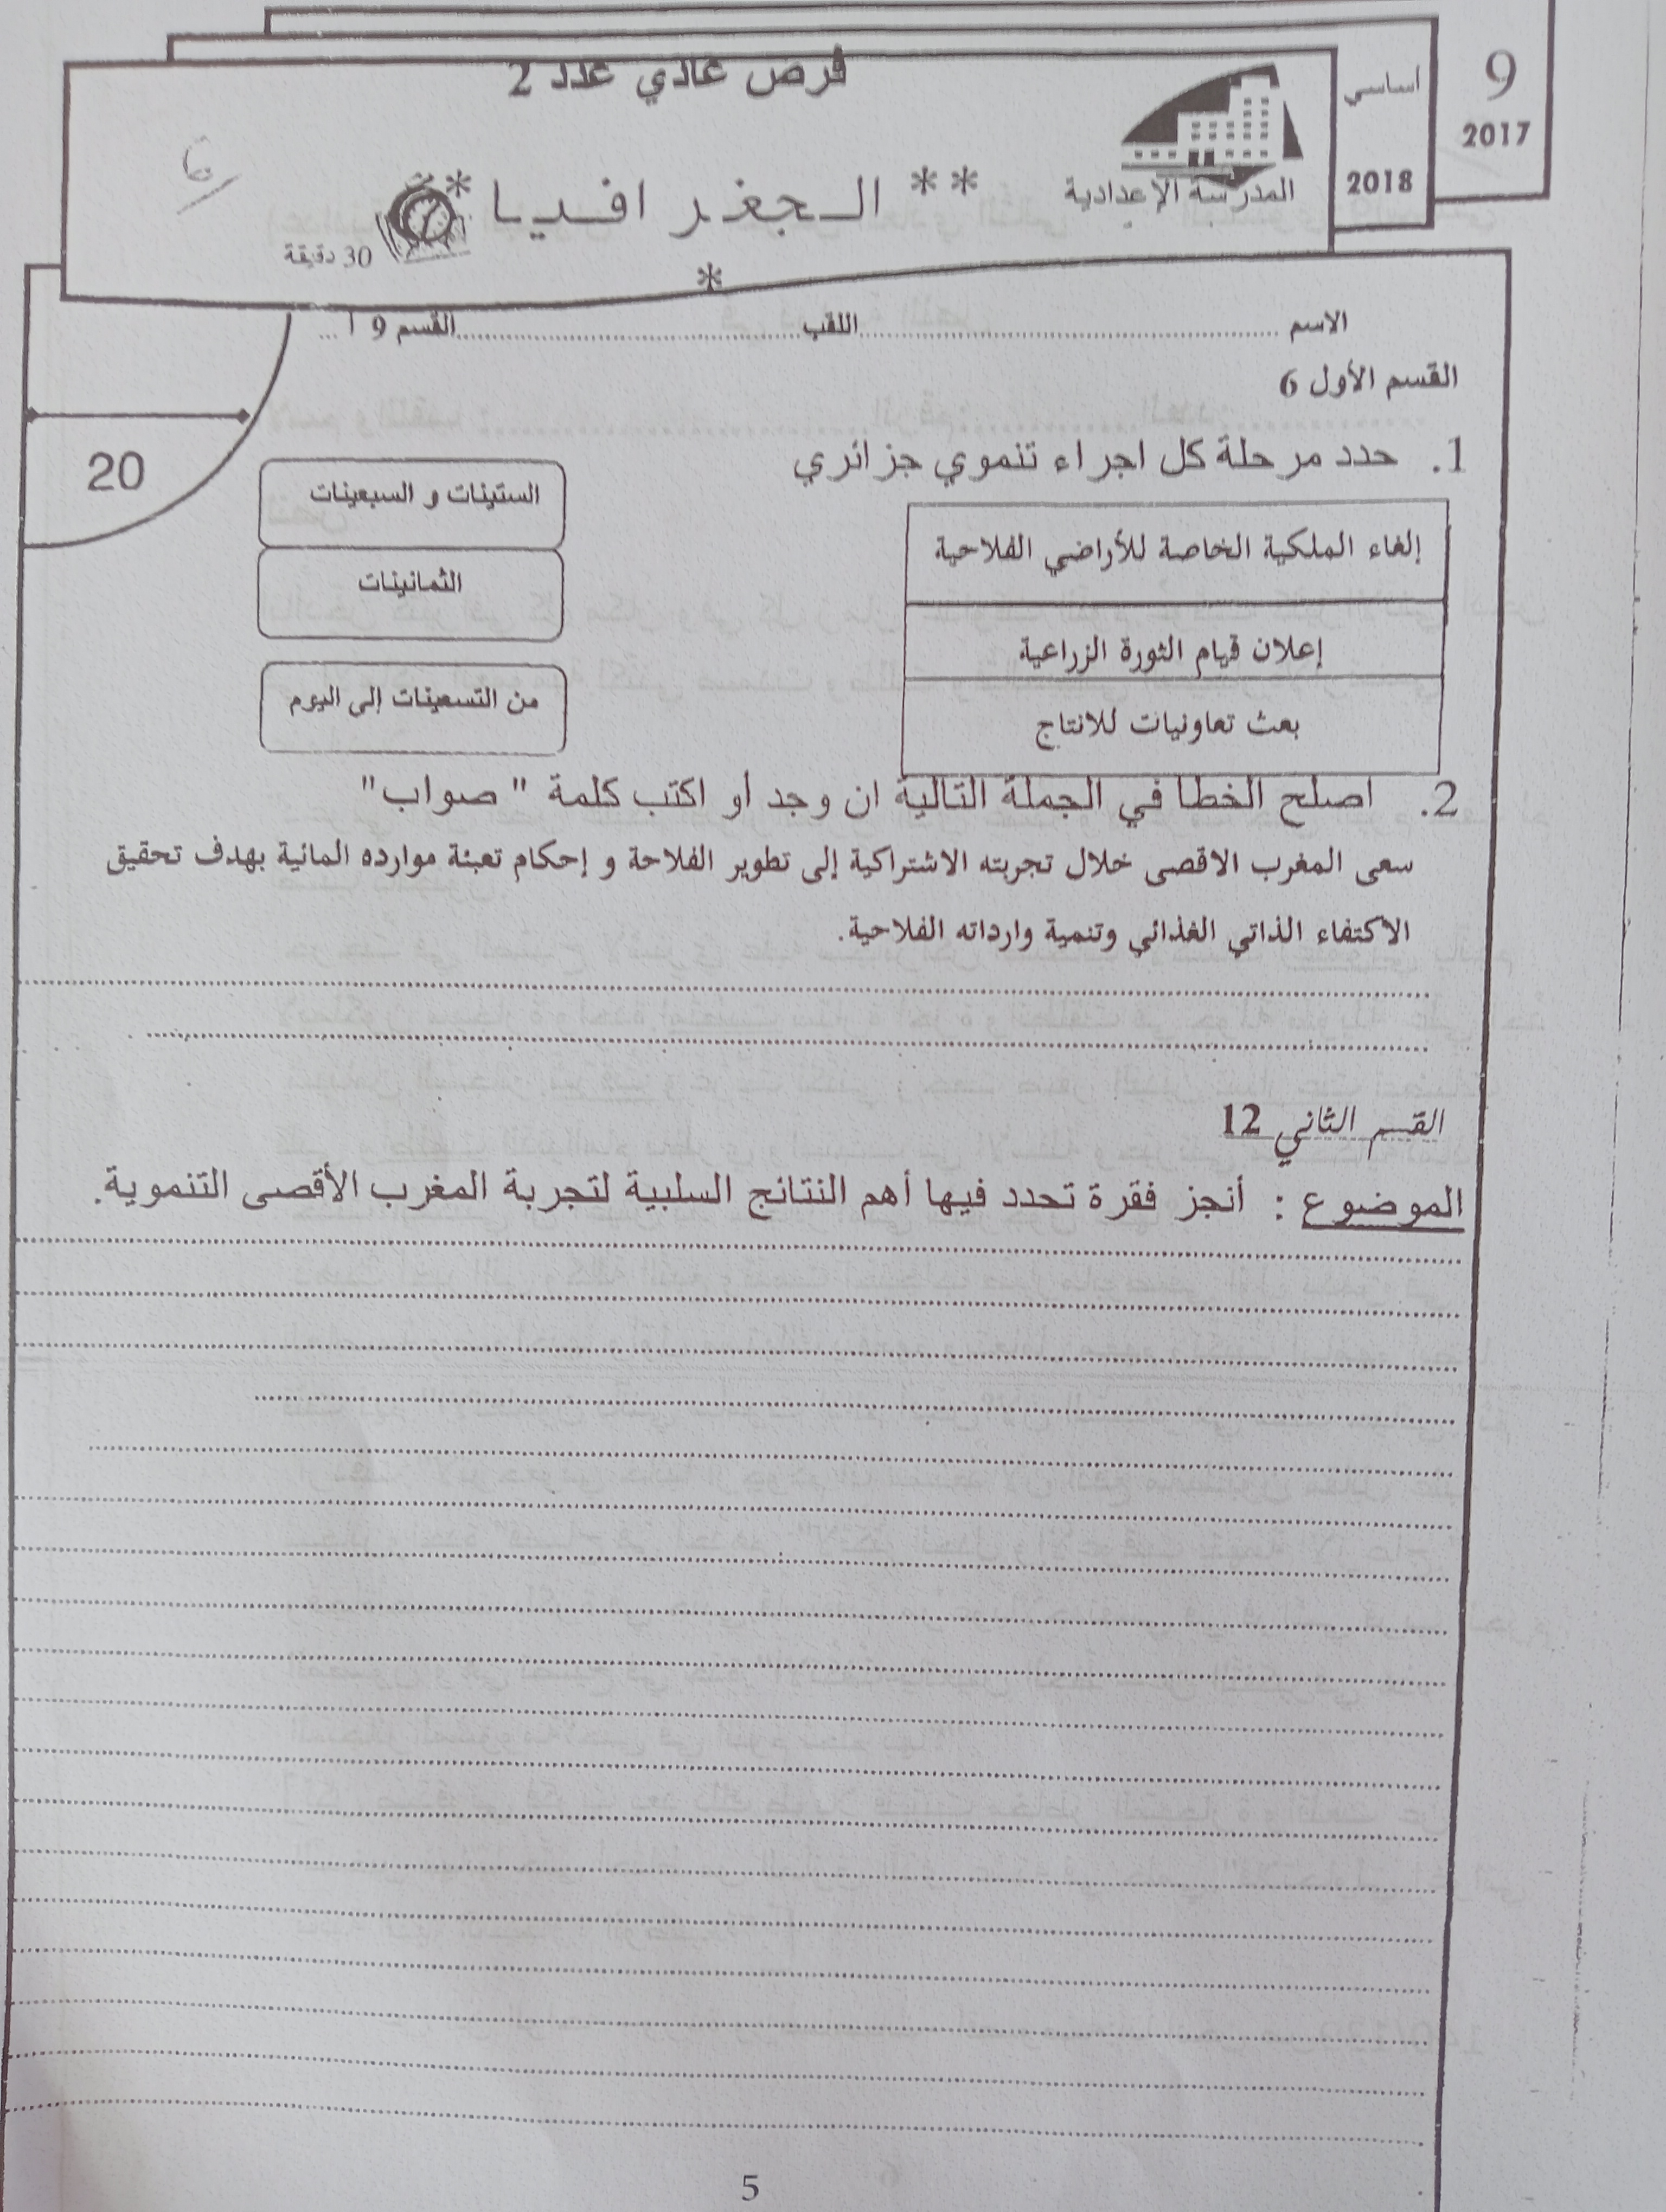 9
2017
أساسي
2018
فرض عادي عدد 2
المدرسة الإعدادية
** الجغرافيا **
*
30 دقيقة
6
الاسم ........ اللقب ........ القسم 9 أ ...
20
القسم الأول 6
1. حدد مرحلة كل اجراء تنموي جزائري
إلغاء الملكية الخاصة للأراضي الفلاحية
إعلان قيام الثورة الزراعية
بعث تعاونيات للانتاج
الستينات و السبعينات
الثمانينات
من التسعينات إلى اليوم
2. اصلح الخطا في الجملة التالية ان وجد أو اكتب كلمة " صواب"
سعى المغرب الاقصى خلال تجربته الاشتراكية إلى تطوير الفلاحة و إحكام تعبئة موارده المائية بهدف تحقيق
الاكتفاء الذاتي الغذائي وتنمية وارداته الفلاحية.
القسم الثاني 12
الموضوع : أنجز فقرة تحدد فيها أهم النتائج السلبية لتجربة المغرب الأقصى التنموية.
5